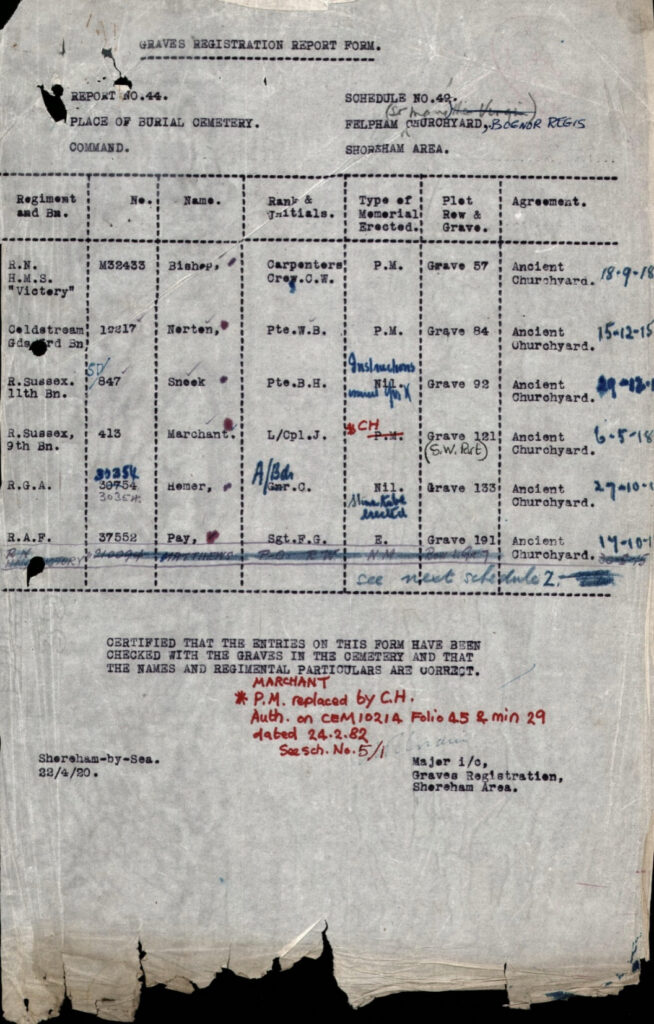 GRAVES REGISTRATION REPORT FORM.
REPORT NO.44. SCHEDULE NO.49.
(St Mary)
PLACE OF BURIAL CEMETERY. FELPHAM CHURCHYARD, BOGNOR REGIS
COMMAND. SHOREHAM AREA.
Regiment and Bn. No. Name. Rank & Initials. Type of Memorial Erected. Plot Row & Grave. Agreement.
R.N. M32433 Bishop, Carpenters P.M. Grave 57 Ancient 18-9-18
H.M.S. Crew.C.W. Churchyard.
"Victory"
Coldstream 19217 Norton, Pte.W.B. P.M. Grave 84 Ancient 15-12-15
Gds. 3rd Bn Churchyard.
Instructions
R.Sussex. SD/847 Sneek Pte.B.H. Nil. Grave 92 Ancient
11th Bn. Churchyard.
R.Sussex, 413 Marchant. L/Cpl.J. * CH P.M. Grave 121 Ancient 6-5-18
9th Bn. (S.W. Part) Churchyard.
30354 A/Bdr
R.G.A. 30754 Homer, Gnr.C. Nil. Grave 133 Ancient 27-10-1
30354. Churchyard.
erected
R.A.F. 37552 Pay, Sgt.F.G. E. Grave 191 Ancient 17-10-1
Churchyard.
MATTHEWS
see next schedule 2.
CERTIFIED THAT THE ENTRIES ON THIS FORM HAVE BEEN
CHECKED WITH THE GRAVES IN THE CEMETERY AND THAT
THE NAMES AND REGIMENTAL PARTICULARS ARE CORRECT.
MARCHANT
* P.M. replaced by C.H.
Auth. on CEM10214 Folio 45 & min 29
dated 24.2.82
See sch. No. 5/1
Shoreham-by-Sea. Major i/c,
22/4/20. Graves Registration,
Shoreham Area.